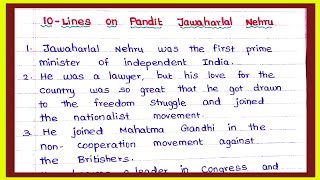 10-Lines on Pandit Jawaharlal Nehru
1. Jawaharlal Nehru was the first prime
minister of independent India.
2. He was a lawyer, but his love for the
country was so great that he got drawn
to the freedom struggle and joined
the nationalist movement.
3. He joined Mahatma Gandhi in the
non-cooperation movement against
the Britishers.
a leader in Congress and